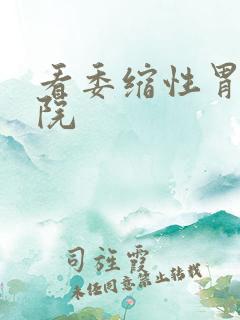 看委缩性胃
院
司旌霞
未经同意禁止转载